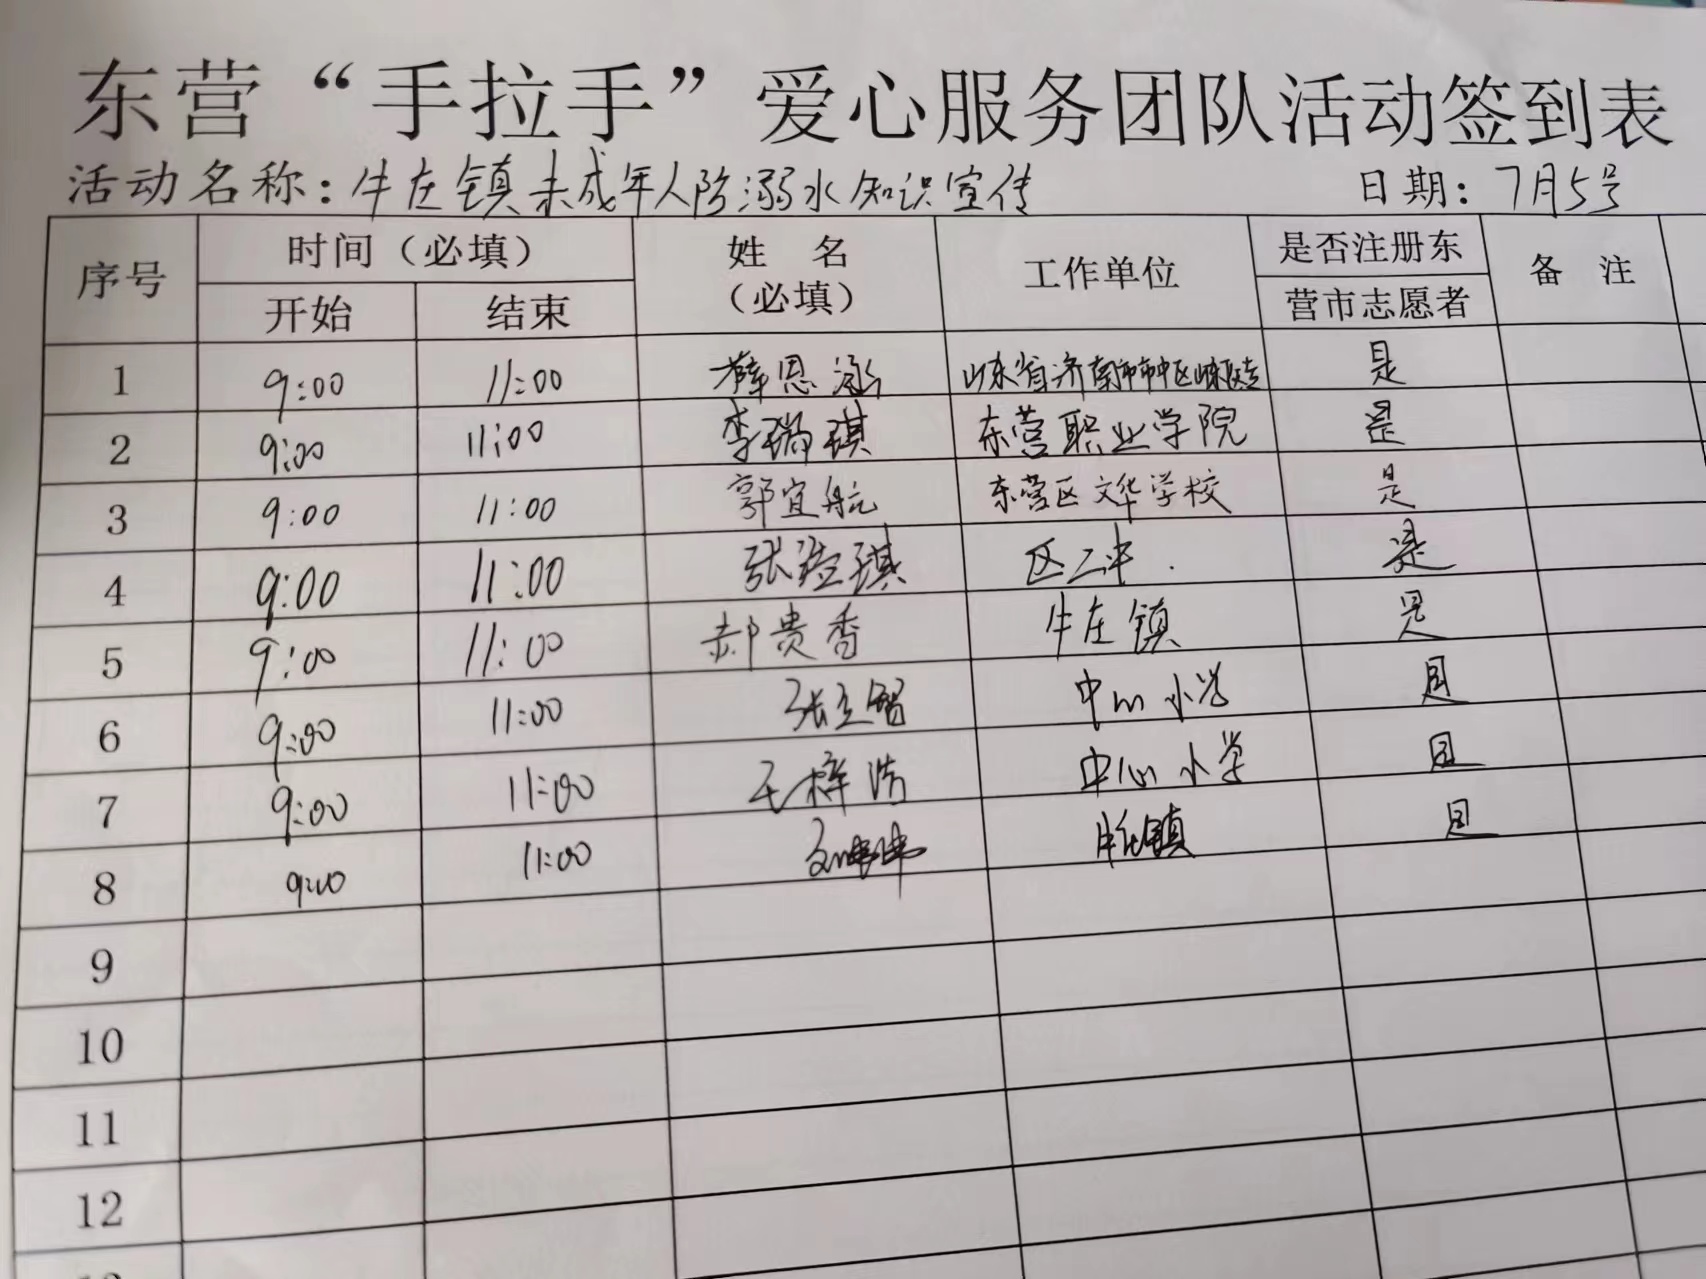 东营“手拉手”爱心服务团队活动签到表
活动名称：牛庄镇未成年人防溺水知识宣传 日期：7月5号
序号 时间（必填） 姓 名（必填） 工作单位 是否注册东营市志愿者 备 注
开始 结束
1 9:00 11:00 薛恩涵 山东省济南市市中区 是
2 9:00 11:00 李瑞琪 东营职业学院 是
3 9:00 11:00 郭宜航 东营区文华学校 是
4 9:00 11:00 张 琪 区二中. 是
5 9:00 11:00 郝贵香 牛庄镇 是
6 9:00 11:00 张立智 中心小学 是
7 9:00 11:00 王梓浩 中心小学 是
8 9:00 11:00 牛庄镇 是
9
10
11
12